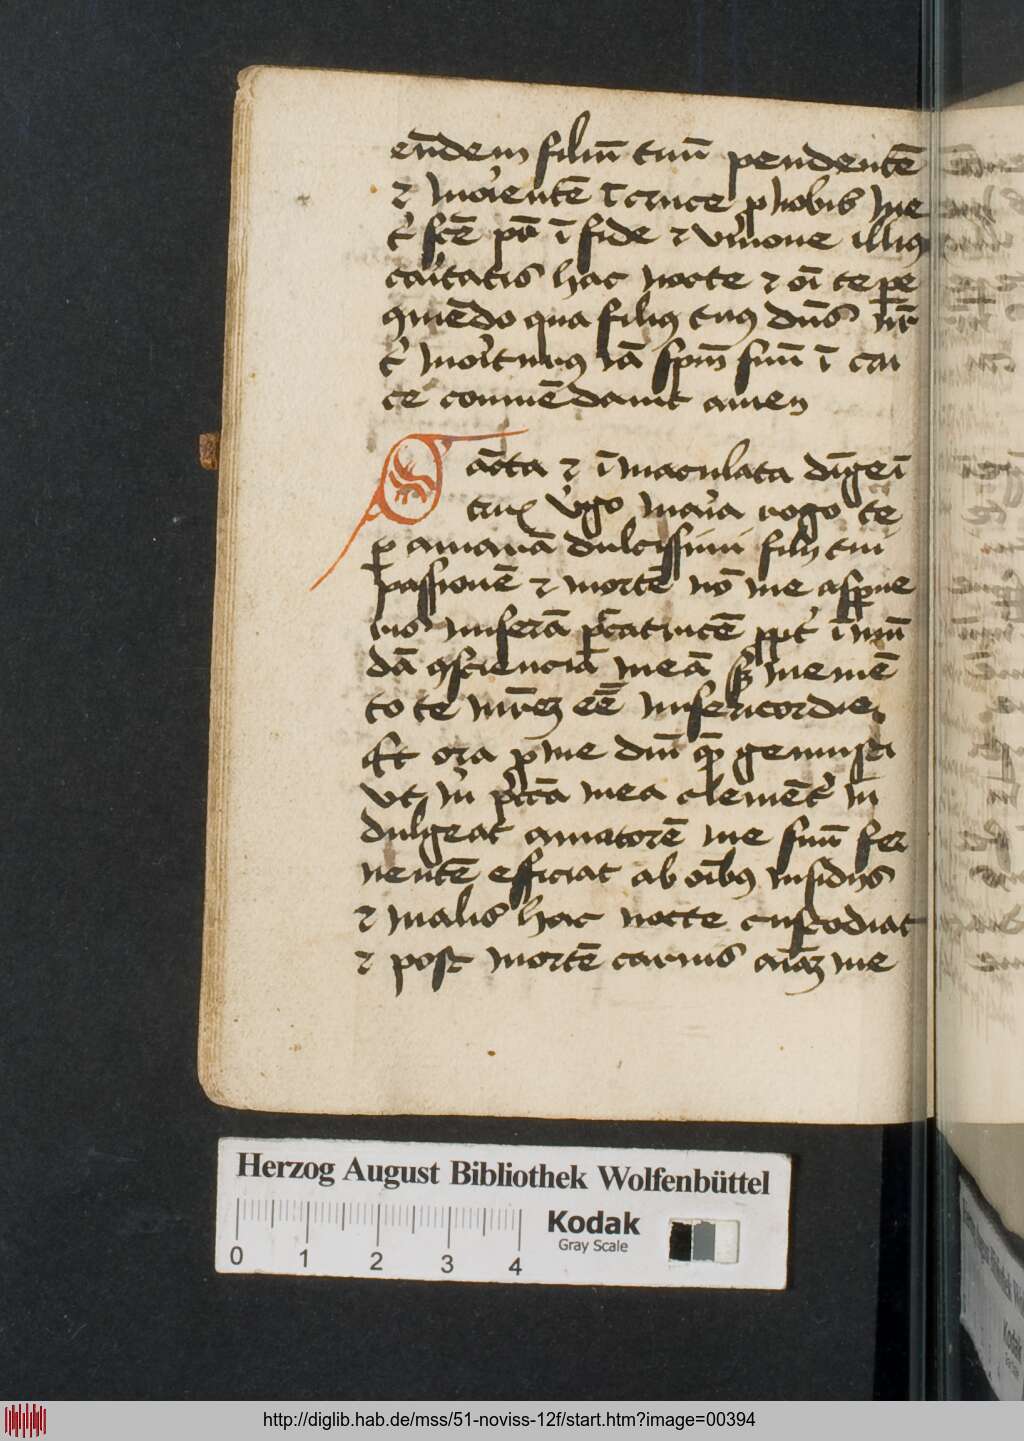 eūdem filiū tuū pendentē
⁊ morientē ī cruce ꝓ nobis me
scē pr̄ ī fide ⁊ vnione illiꝰ
caritatis hac nocte ⁊ oī tēpe
quiēdo qua filiꝰ tuꝰ dn̄s nr̄
moriturꝰ iā spm̄ suū ī cru
ce commēdauit amen
Sācta ⁊ īmaculata dīgeī
trix v'go maria rogo te
ꝑ amarā dulcissimi filij tui
passionē ⁊ mortē nō me asꝑne
ris miserā pc̄catricē ppt' īmū
dā ꝯscienciā meā sꝫ memē
to te mr̄eꝫ eē misericordie
Et ora ꝓ me dm̄ quē genuisti
vt m' pc̄cā mea clemēt' in
dulgeat amatorē me suū fer
uentē efficiat ab oībꝰ insidijs
⁊ malis hac nocte custodiat
⁊ post mortē carnis aīaꝫ me
Herzog August Bibliothek Wolfenbüttel
Kodak
Gray Scale
0 1 2 3 4
http://diglib.hab.de/mss/51-noviss-12f/start.htm?image=00394